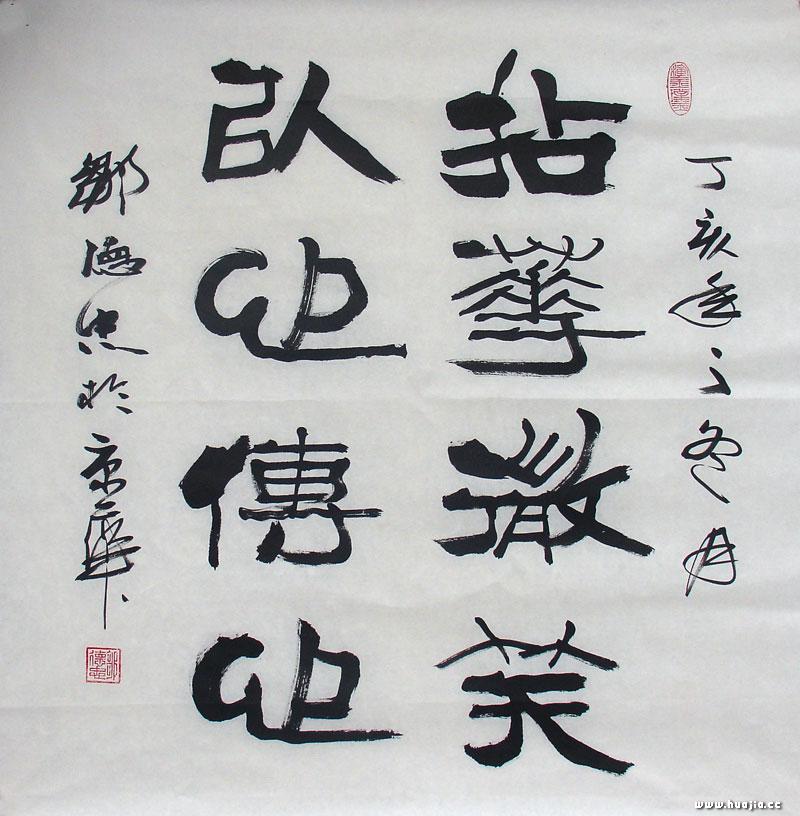 丁亥年之冬月
拈華微笑
以心傳心
鄒德忠於京華
www.huajia.cc